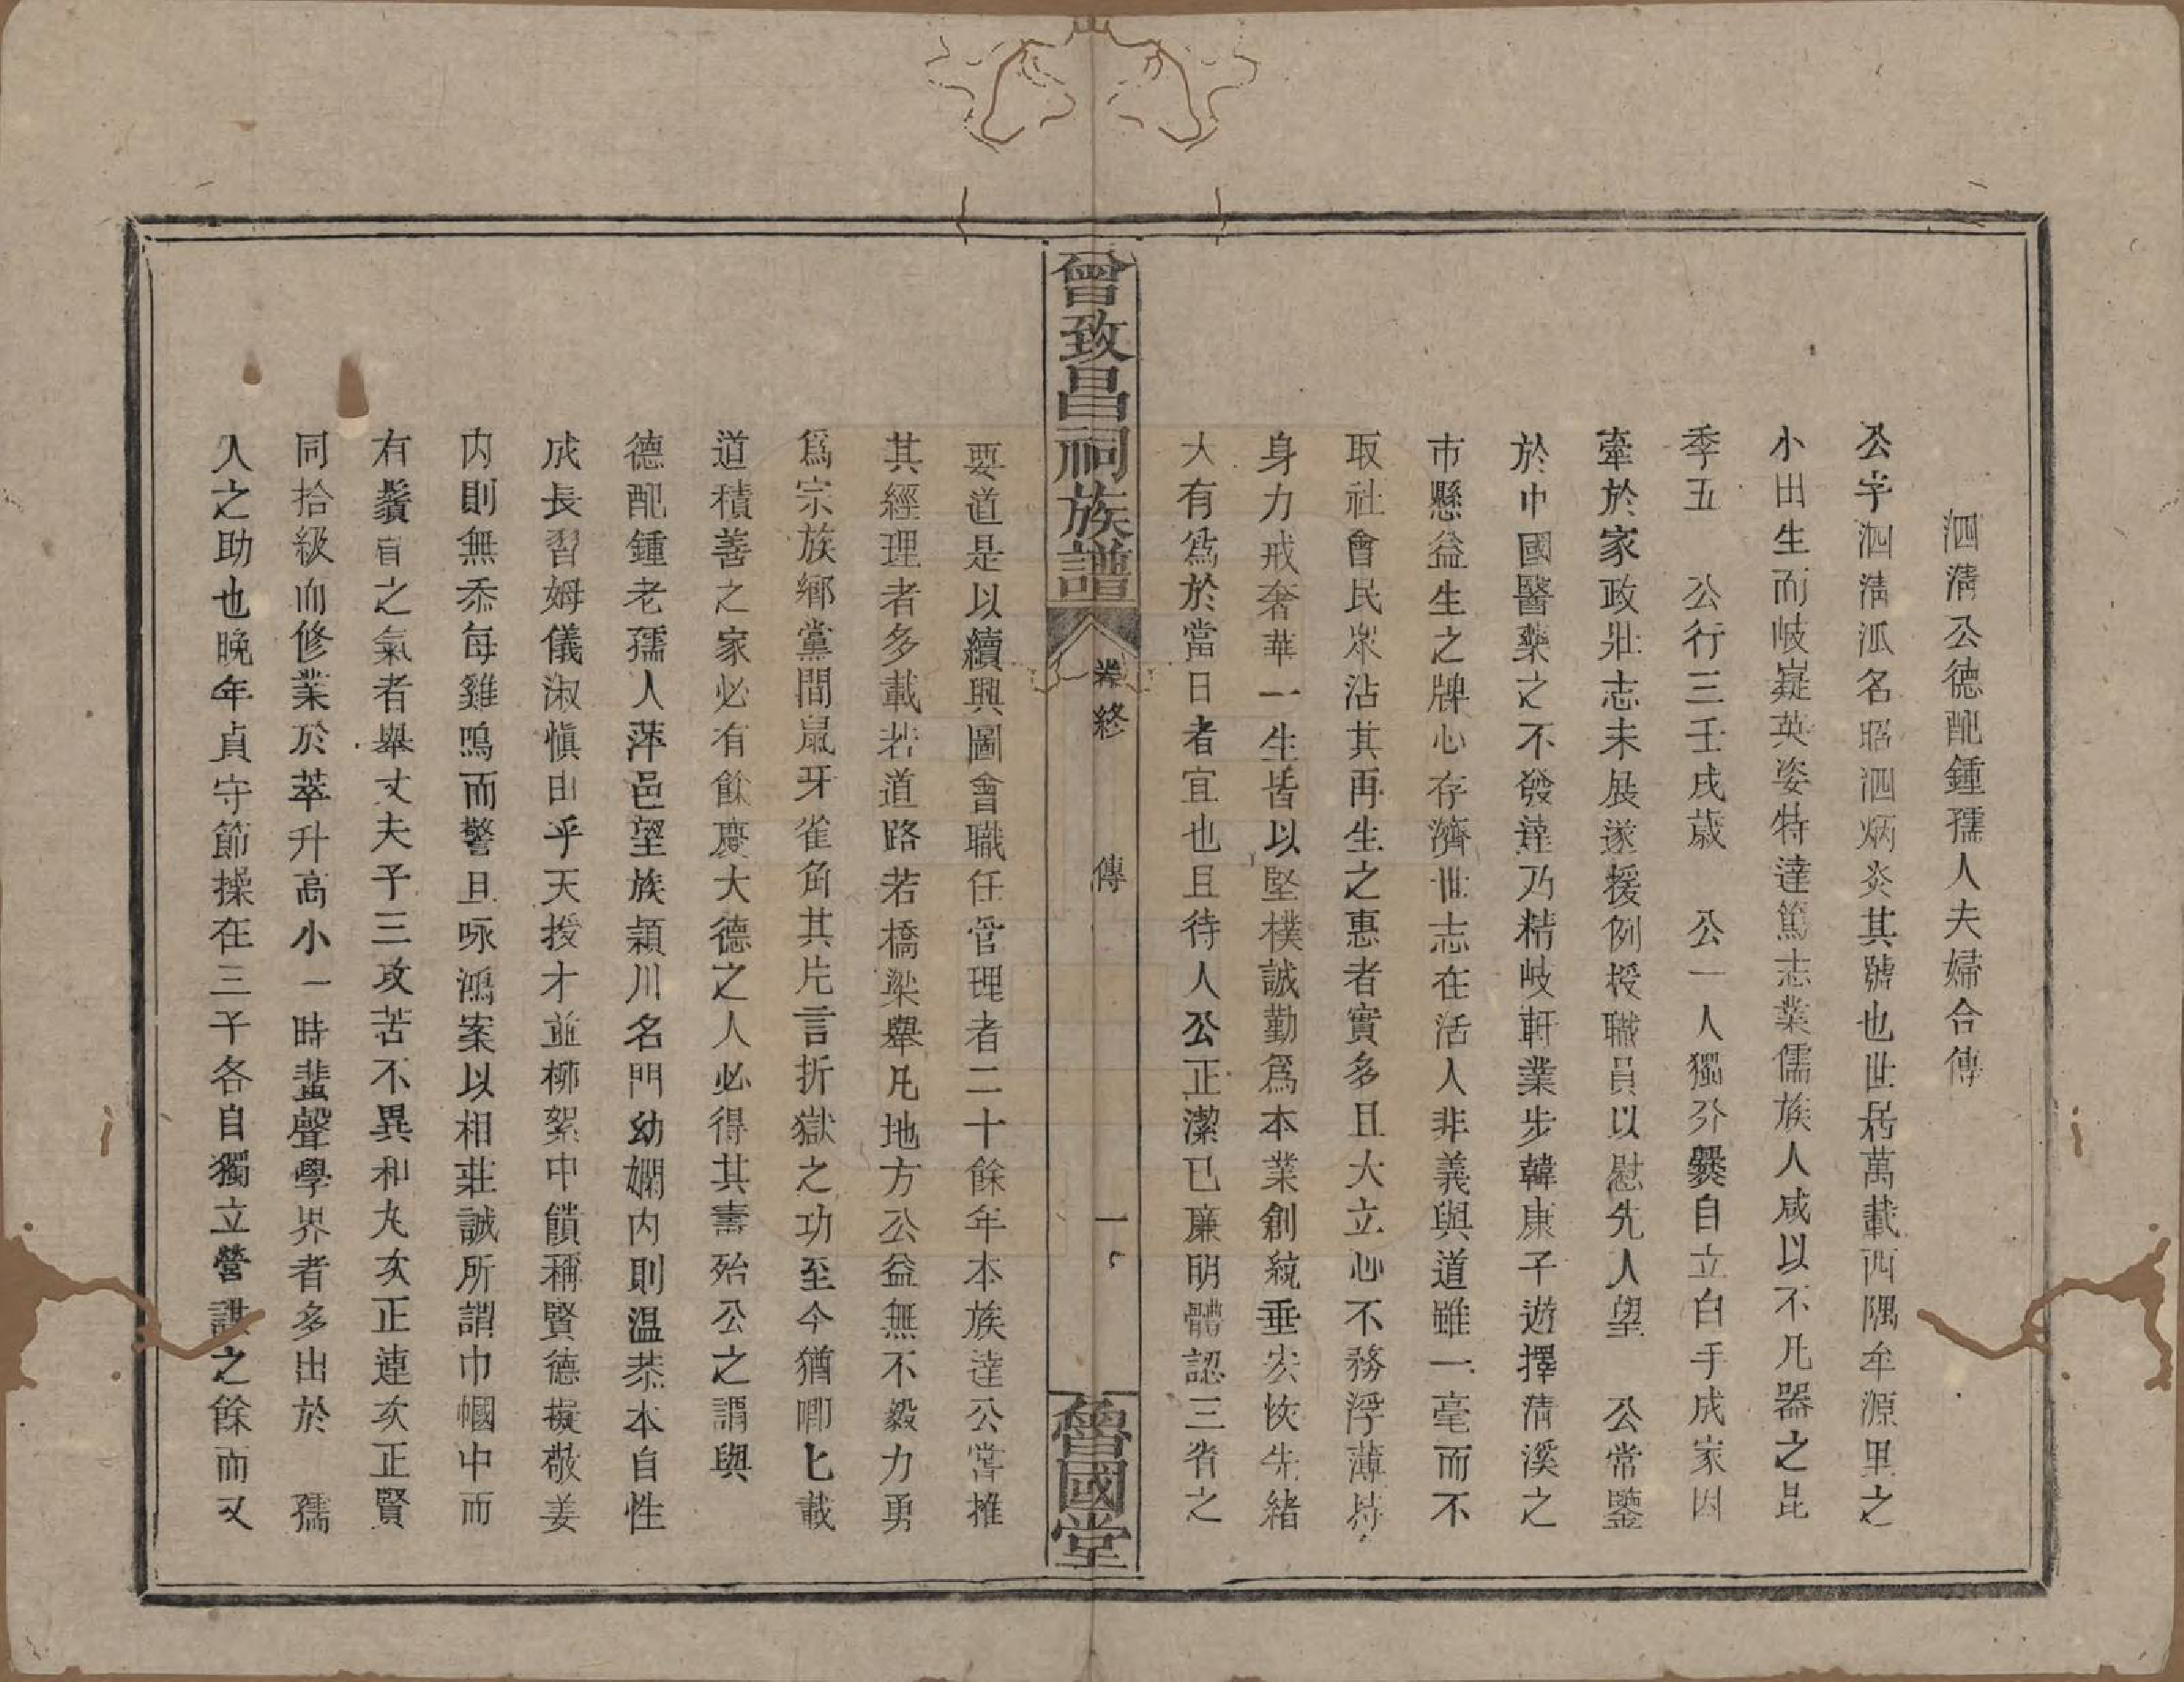 泗淸公德配鍾孺人夫婦合傳
公字泗淸派名昭泗炳炎其號也世居萬載西隅牟源里之
小田生而岐嶷英姿特達篤志業儒族人咸以不凡器之昆
季五　公行三壬戌歲　公一人獨分爨自立白手成家因
牽於家政壯志未展遂援例授職員以慰先人望　公常鑒
於中國醫藥之不發達乃精岐軒業步韓康子遊擇淸溪之
市懸益生之牌心存濟世志在活人非義與道雖一毫而不
取社會民衆沾其再生之惠者實多且大立心不務浮薄持
身力戒奢華一生皆以堅樸誠勤爲本業創統垂宏恢先緒
大有爲於當日者宜也且待人公正潔己廉明體認三省之
曾致昌祠族譜
卷終
傳
一
魯國堂
要道是以續興圖會職任管理者二十餘年本族達公嘗推
其經理者多載若道路若橋梁舉凡地方公益無不毅力勇
爲宗族鄉黨間鼠牙雀角其片言折獄之功至今猶啣匕載
道積善之家必有餘慶大德之人必得其壽殆公之謂與
德配鍾老孺人萍邑望族頴川名門幼嫻内則温恭本自性
成長習姆儀淑愼由乎天授才並柳絮中饋稱賢德擬敬姜
内則無忝每雞鳴而警旦咏鴻案以相莊誠所謂巾幗中而
有鬚眉之氣者舉丈夫子三攻苦不異和丸次正連次正賢
同拾級而修業於萃升高小一時蜚聲學界者多出於　孺
人之助也晚年貞守節操在三子各自獨立營謀之餘而又